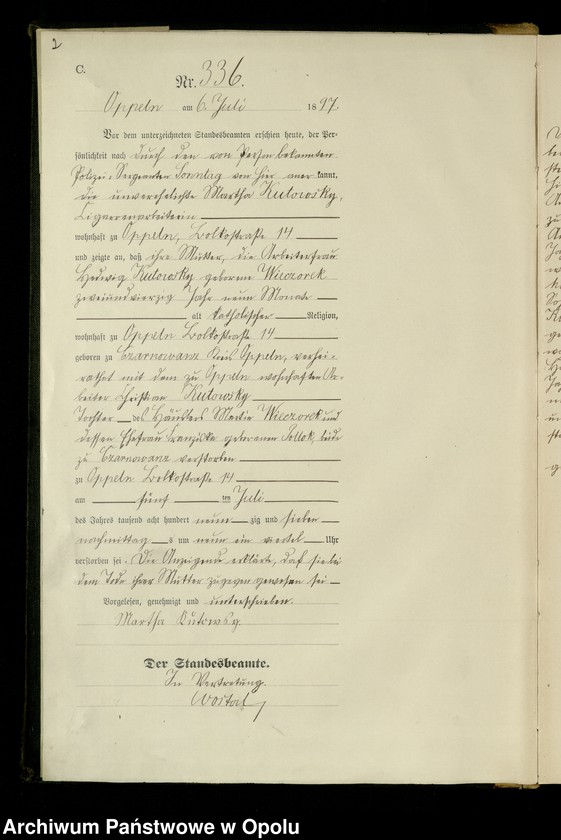 2
C.
Nr. 336.
Oppeln am 6. Juli 1897.
Vor dem unterzeichneten Standesbeamten erschien heute, der Per-
sönlichkeit nach durch den von Person bekannten
Polizei-Sergeanten Sonntag von hier aner kannt,
die unverehelichte Martha Kutowsky,
Cigarrenarbeiterin
wohnhaft zu Oppeln, Bolkostraße 14
und zeigte an, daß ihre Mutter, die Arbeiterfrau
Hedwig Kutowsky geborene Wieczorek
zweiundvierzig Jahr neun Monate
alt katholischer Religion,
wohnhaft zu Oppeln Bolkostraße 14
geboren zu Czarnowanz Kreis Oppeln, verhei-
rathet mit dem zu Oppeln wohnhaften Ar-
beiter Christian Kutowsky
Tochter des Häuslers Martin Wieczorek und
dessen Ehefrau Franziska geborenen Pollok, beide
zu Czarnowanz verstorben
zu Oppeln Bolkostraße 14
am fünf ten Juli
des Jahres tausend acht hundert neun zig und sieben
nachmittag s um neun ein viertel Uhr
verstorben sei. Die Anzeigende erklärte, daß sie bei
dem Tode ihrer Mutter zugegen gewesen sei
Vorgelesen, genehmigt und unterschrieben.
Martha Kutowsy.
Der Standesbeamte.
In Vertretung.
Wostal
Archiwum Państwowe w Opolu